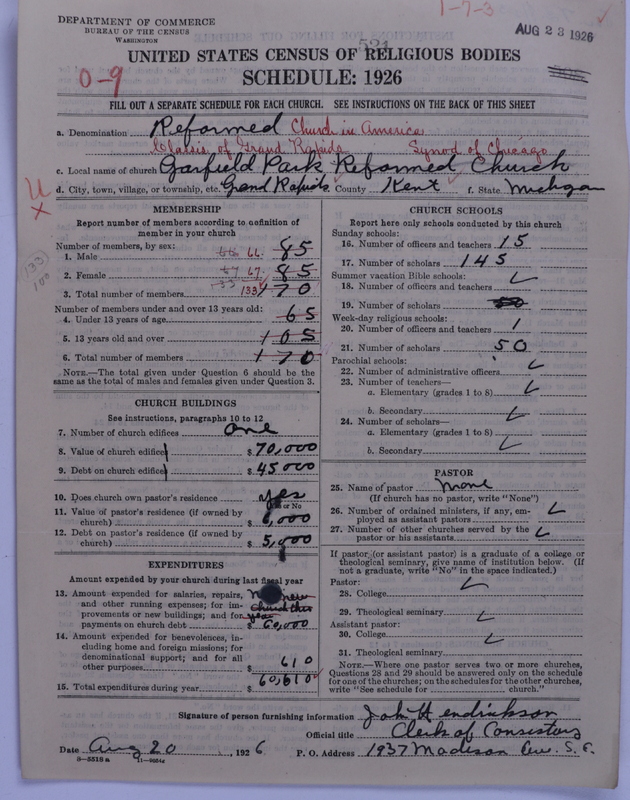 1-7-3
DEPARTMENT OF COMMERCE
BUREAU OF THE CENSUS
WASHINGTON
531
AUG 23 1926
UNITED STATES CENSUS OF RELIGIOUS BODIES
0-9
SCHEDULE: 1926
FILL OUT A SEPARATE SCHEDULE FOR EACH CHURCH. SEE INSTRUCTIONS ON THE BACK OF THIS SHEET
a. Denomination Reformed Church in America
Classis of Grand Rapids Synod of Chicago
c. Local name of church Garfield Park Reformed Church
d. City, town, village, or township, etc. Grand Rapids County Kent f. State Michigan
MEMBERSHIP
Report number of members according to definition of member in your church
Number of members, by sex:
1. Male 66 85
2. Female 67 85
3. Total number of members 133 170
Number of members under and over 13 years old:
4. Under 13 years of age 65
5. 13 years old and over 105
6. Total number of members 170
NOTE.—The total given under Question 6 should be the
same as the total of males and females given under Question 3.
CHURCH BUILDINGS
See instructions, paragraphs 10 to 12
7. Number of church edifices One
8. Value of church edifice $ 70,000
9. Debt on church edifice $ 45000
10. Does church own pastor's residence Yes
Yes or No
11. Value of pastor's residence (if owned by
church) $ 6,000
12. Debt on pastor's residence (if owned by
church) $ 5,000
EXPENDITURES
Amount expended by your church during last fiscal year
13. Amount expended for salaries, repairs,
and other running expenses; for im-
provements or new buildings; and for
payments on church debt $ 60,000
new
church this
year
14. Amount expended for benevolences, in-
cluding home and foreign missions; for
denominational support; and for all
other purposes $ 610
15. Total expenditures during year $ 60,610
CHURCH SCHOOLS
Report here only schools conducted by this church
Sunday schools:
16. Number of officers and teachers 15
17. Number of scholars 145
Summer vacation Bible schools:
18. Number of officers and teachers
19. Number of scholars
Week-day religious schools:
20. Number of officers and teachers 1
21. Number of scholars 50
Parochial schools:
22. Number of administrative officers
23. Number of teachers—
a. Elementary (grades 1 to 8)
b. Secondary
24. Number of scholars—
a. Elementary (grades 1 to 8)
b. Secondary
PASTOR
25. Name of pastor None
(If church has no pastor, write "None")
26. Number of ordained ministers, if any, em-
ployed as assistant pastors
27. Number of other churches served by the
pastor or his assistants
If pastor (or assistant pastor) is a graduate of a college or
theological seminary, give name of institution below. (If
not a graduate, write "No" in the space indicated.)
Pastor:
28. College
29. Theological seminary
Assistant pastor:
30. College
31. Theological seminary
NOTE.—Where one pastor serves two or more churches,
Questions 28 and 29 should be answered only on the schedule
for one of the churches; on the schedules for the other churches,
write "See schedule for church."
Signature of person furnishing information John Hendrickson
Official title Clerk of Consistory
Date Aug 20, 1926 P. O. Address 1937 Madison Ave. S. E.
8—5518a 11—9054